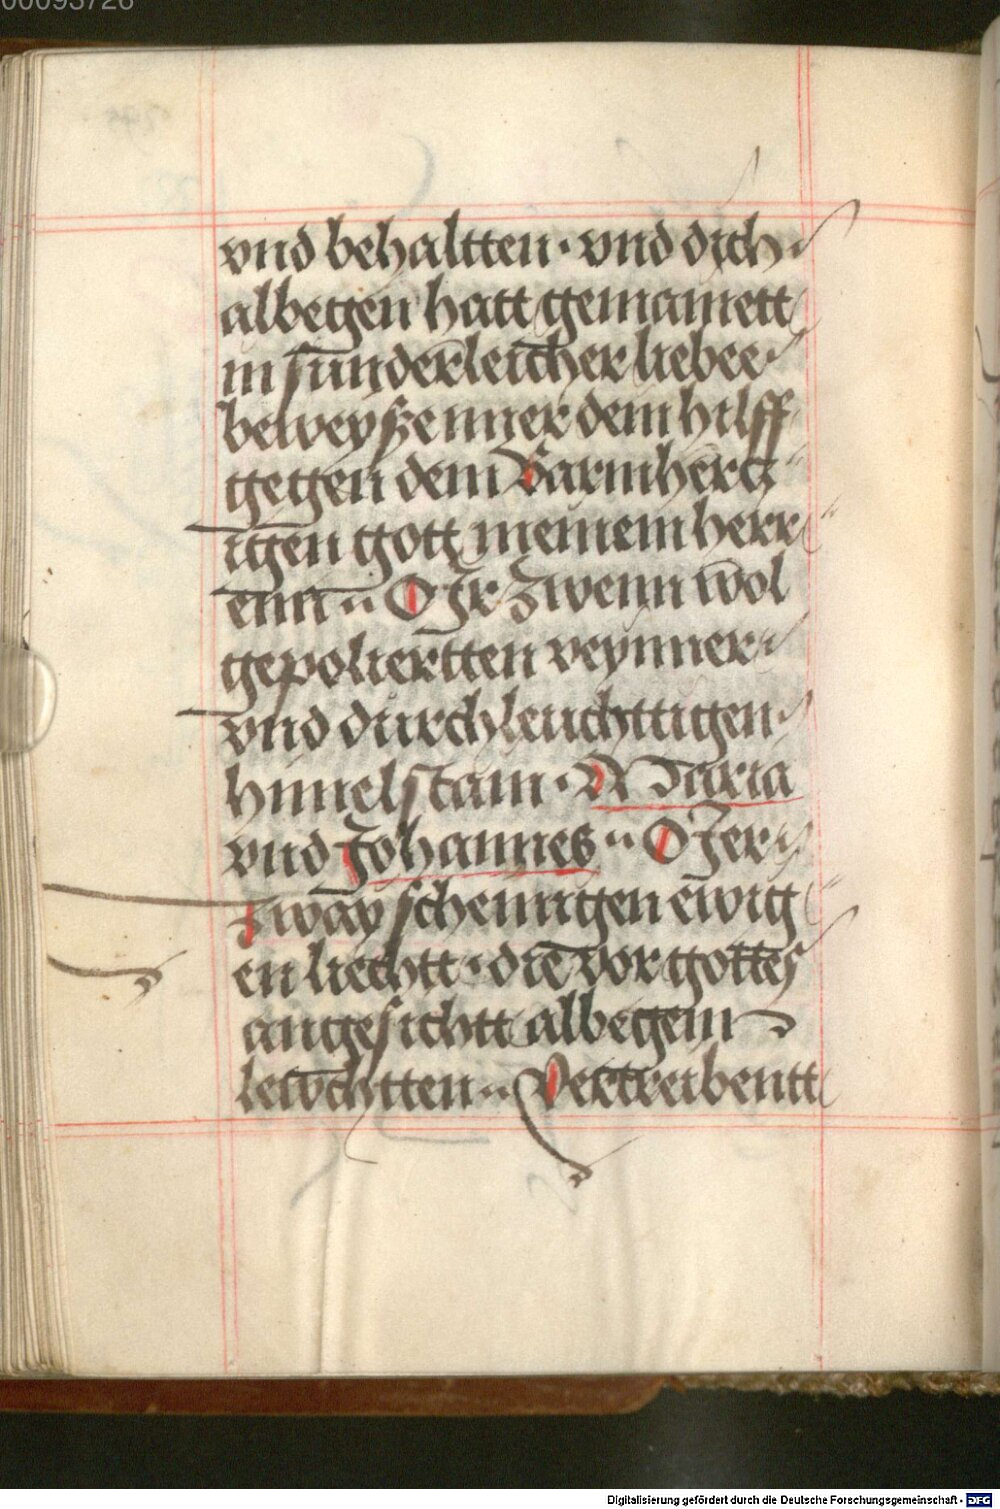 00093726
vnd behaltten · vnd dich
albegen hatt gemainett
in sunderleicher liebee
beweysze mier dein hilff
gegen dem Barmhertz
igen gott meinem herr
enn ·· O Jr zwenn wol
gepoliertten veynner
vnd durchleuchttigen
himelstain · Maria
vnd Johannes ·· O Jer
zway scheinigen ewig
en liechtt · die vor gottes
angesichtt albegein
lewchtten ·· Vertreibentt
Digitalisierung gefördert durch die Deutsche Forschungsgemeinschaft - DFG